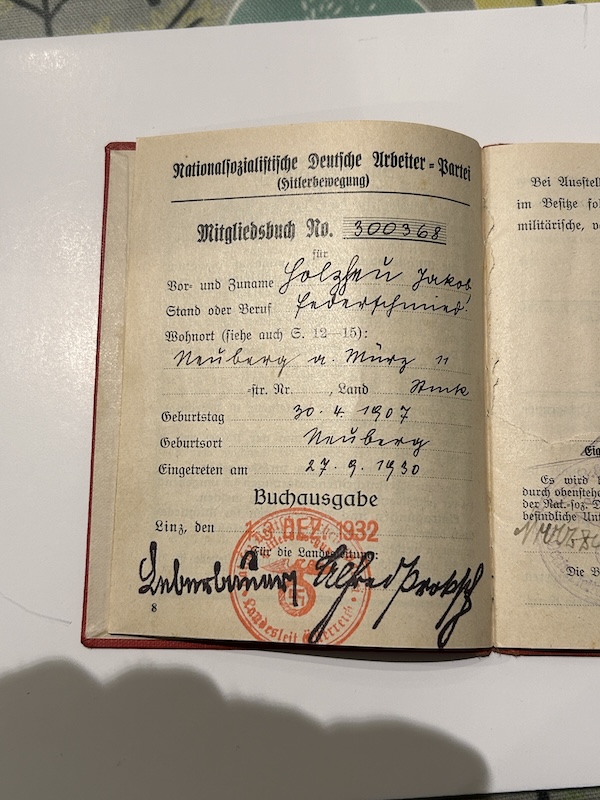 Nationalsozialistische Deutsche Arbeiter-Partei
(Hitlerbewegung)
Mitgliedsbuch No. 300368
für
Vor- und Zuname Holzheu Jakob
Stand oder Beruf Federschmied
Wohnort (siehe auch S. 12—15):
Neuberg a. Mürz 11
-str. Nr. , Land
Geburtstag 30. 4. 1907
Geburtsort Neuberg
Eingetreten am 27. 9. 1930
Buchausgabe
Linz, den DEZ. 1932
Für die Landesleitung:
Alfred Proksch
8
Bei Ausstel
im Besitze fol
militärische, v
Es wird
durch obenstehe
der Nat.-soz. D
befindliche Unt
Die B